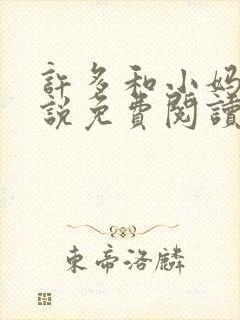 許多和小妈
說免費閱讀
東帝洛麟